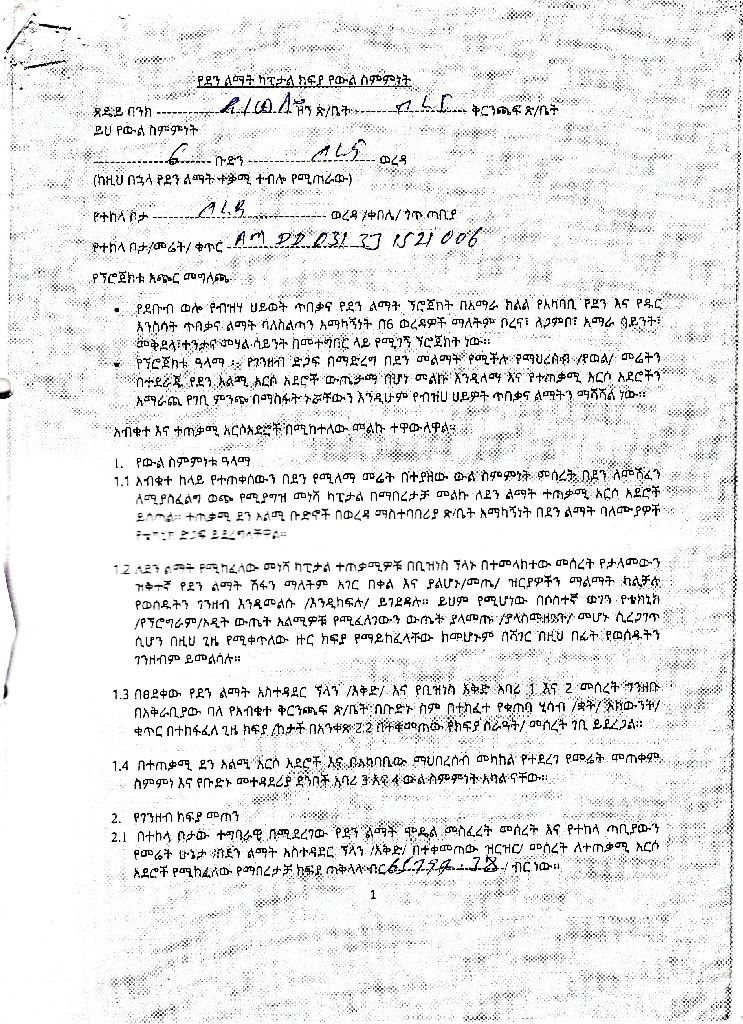 የደን ልማት ካፒታል ክፍያ የውል ስምምነት
ጸደይ ባንክ ዞን ጽ/ቤት ቅርንጫፍ ጽ/ቤት
ይህ የውል ስምምነት
6 ቡድን ወረዳ
(ከዚህ በኋላ የደን ልማት ተቃሚ ተብሎ የሚጠራው)
የተከላ ቦታ ወረዳ /ቀበሌ/ ጎጥ ጣቢያ
የተከላ ቦታ/መሬት/ ቁጥር AM DD 031 33 1521 006
የፕሮጀክቱ አጭር መግለጫ
• የደቡብ ወሎ የብዝሃ ህይወት ጥበቃና የደን ልማት ፕሮጀክት በአማራ ክልል የአካባቢ የደን እና የዱር
እንስሳት ጥበቃና ልማት ባለስልጣን አማካኝነት በ6 ወረዳዎች ማለትም ቦረና፣ ለጋምቦ፣ አማራ ሳይንት፣
መቅደላ፣ተንታና መሃል ሳይንት በመተግበር ላይ የሚገኝ ፕሮጀክት ነው።
• የፕሮጀክቱ ዓላማ ፡ የገንዘብ ድጋፍ በማድረግ በደን መልማት የሚችሉ የማህረሰብ /የወል/ መሬትን
በተደራጁ የደን አልሚ አርሶ አደሮች ውጤታማ በሆነ መልኩ እንዲለማ እና የተጠቃሚ አርሶ አደሮችን
አማራጪ የገቢ ምንጭ በማስፋት ኑሯቸውን እንዲሁም የብዝሀ ህይዎት ጥበቃና ልማትን ማሻሻል ነው።
አብቁተ እና ተጠቃሚ አርሶአደሮች በሚከተለው መልኩ ተዋውለዋል።
1. የውል ስምምነቱ ዓላማ
1.1 አብቁተ ከላይ የተጠቀሰውን በደን የሚለማ መሬት በተያዘው ውል ስምምነት ምሰረት በደን ለመሸፈን
ለሚያስፈልግ ወጭ የሚያግዝ መነሻ ካፒታል በማበረታቻ መልኩ ለደን ልማት ተጠቃሚ አርሶ አደሮች
ይሰጣል። ተጠቃሚ ደን አልሚ ቡድኖች በወረዳ ማስተባበሪያ ጽ/ቤት አማካኝነት በደን ልማት ባለሙያዎች
የቴክኒክ ድጋፍ ይደረግላቸዋል።
1.2 ለደን ልማት የሚከፈለው መነሻ ካፒታል ተጠቃሚዎቹ በቢዝነስ ፕላኑ በተመላከተው መሰረት የታለመውን
ዝቅተኛ የደን ልማት ሽፋን ማለትም አገር በቀል እና ያልሆኑ/መጤ/ ዝርያዎችን ማልማት ካልቻሉ
የወሰዱትን ገንዘብ እንዲመልሱ /እንዲከፍሉ/ ይገደዳሉ። ይህም የሚሆነው በሶስተኛ ወገን የቴክኒክ
/የፕሮግራም/ኦዲት ውጤት አልሚዎቹ የሚፈለገውን ውጤት ያላመጡ /ያላስመዘገቡ/ መሆኑ ሲረጋገጥ
ሲሆን በዚህ ጊዜ የሚቀጥለው ዙር ክፍያ የማይከፈላቸው ከመሆኑም በሻገር በዚህ በፊት የወሰዱትን
ገንዘብም ይመልሳሉ።
1.3 በፀደቀው የደን ልማት አስተዳደር ፕላን /እቅድ/ እና የቢዝነስ እቅድ አባሪ 1 እና 2 መሰረት ግንዘቡ
በአቅራቢያው ባለ የአብቁተ ቅርንጫፍ ጽ/ቤት በቡድኑ ስም በተከፈተ የቁጠባ ሂሳብ /ቋት/ አካውንት/
ቁጥር በተከፋፈለ ጊዜ ክፍያ /ከታች በአንቀጽ 2.2 በተቀመጠው የክፍያ ስራዓት/ መሰረት ገቢ ይደረጋል።
1.4 በተጠቃሚ ደን አልሚ አርሶ አደሮች እና በአካባቢው ማህበረሰብ መካከል የተደረገ የመሬት መጠቀም
ስምምነ እና የቡድኑ መተዳደሪያ ደንቦች አባሪ 3 እና 4 ውል ስምምነት አካል ናቸው።
2. የገንዘብ ክፍያ መጠን
2.1 በተከላ ቦታው ተግባራዊ በሚደረገው የደን ልማት ሞዴል መስፈረት መሰረት እና የተከላ ጣቢያውን
የመሬት ሁኔታ /በደን ልማት አስተዳደር ፕላን /እቅድ/ በተቀመጠው ዝርዝር/ መሰረት ለተጠቃሚ አርሶ
አደሮች የሚከፈለው የማበረታቻ ክፍያ ጠቅላላ ብር / ብር ነው።
1